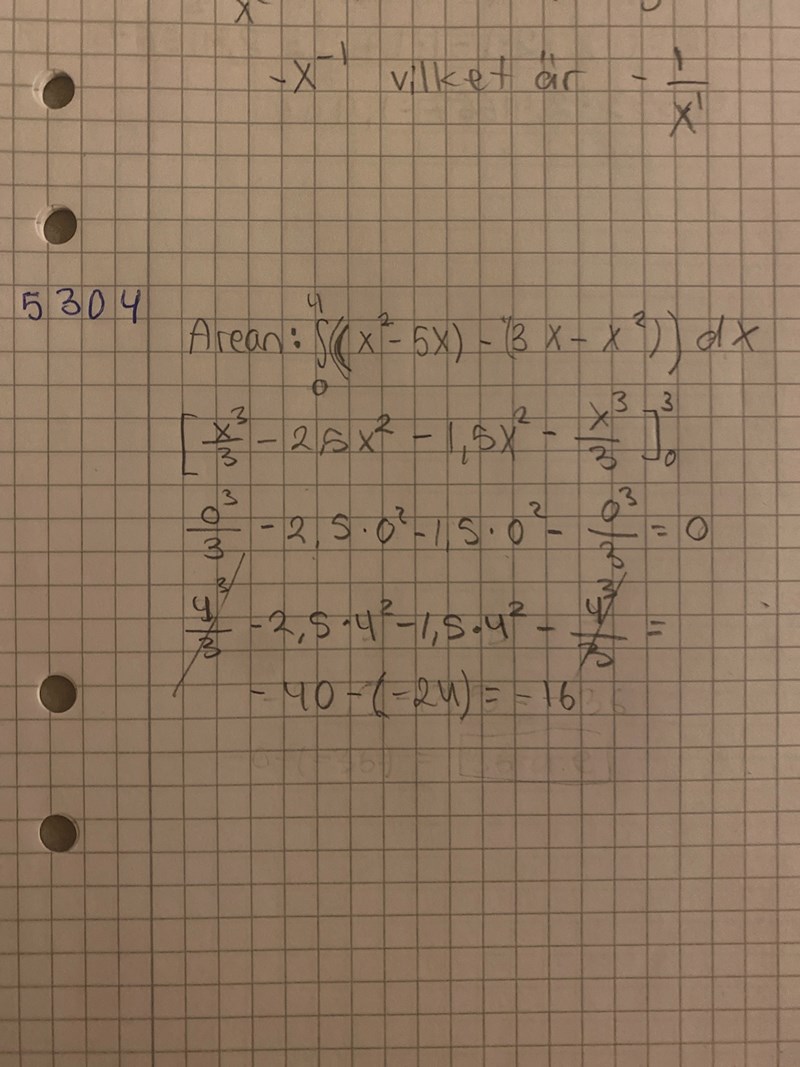 -x⁻¹ vilket är - 1/x¹
5304
Arean: ∫₀⁴((x²-5x)-(3x-x²))dx
[x³/3 - 2,5x² - 1,5x² - x³/3]₀³
0³/3 - 2,5·0² - 1,5·0² - 0³/3 = 0
4³/3 - 2,5·4² - 1,5·4² - 4³/3 =
-40-(-24) = -16